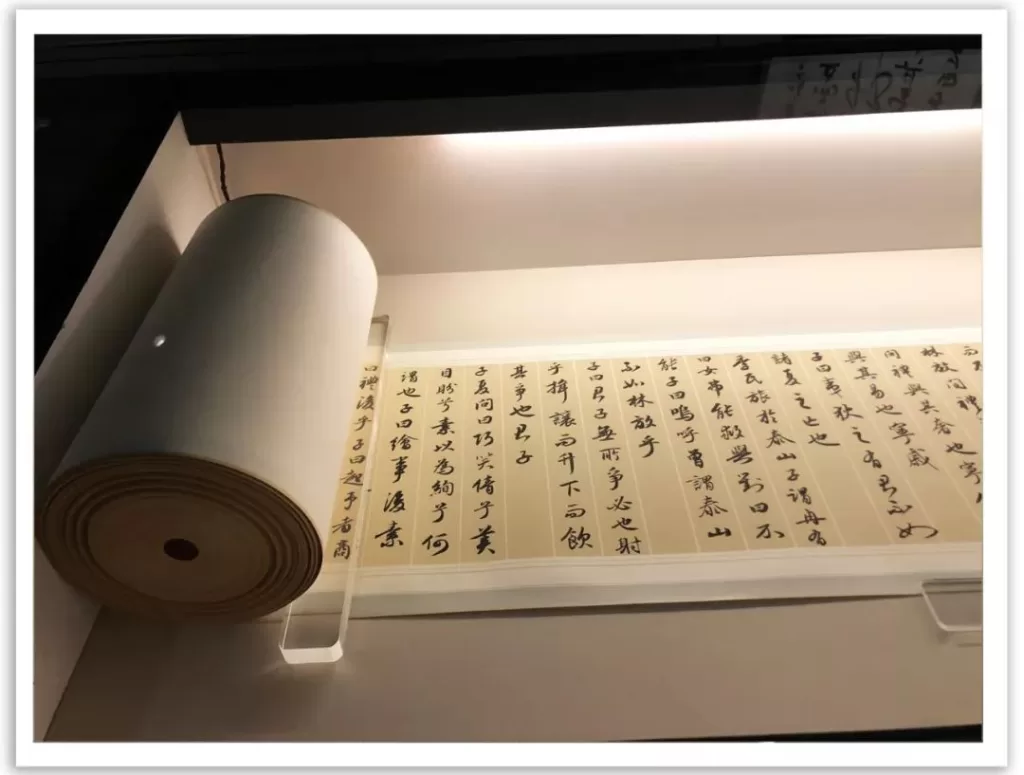 林放問禮
問禮與其奢也寧
與其易也寧戚
子曰夷狄之有君不如
諸夏之亡也
季氏旅於泰山子謂冉有
曰女弗能救與對曰不
能子曰嗚呼曾謂泰山
不如林放乎
子曰君子無所爭必也射
乎揖讓而升下而飲
其爭也君子
子夏問曰巧笑倩兮美
目盼兮素以為絢兮何
謂也子曰繪事後素
曰禮後乎子曰起予者商